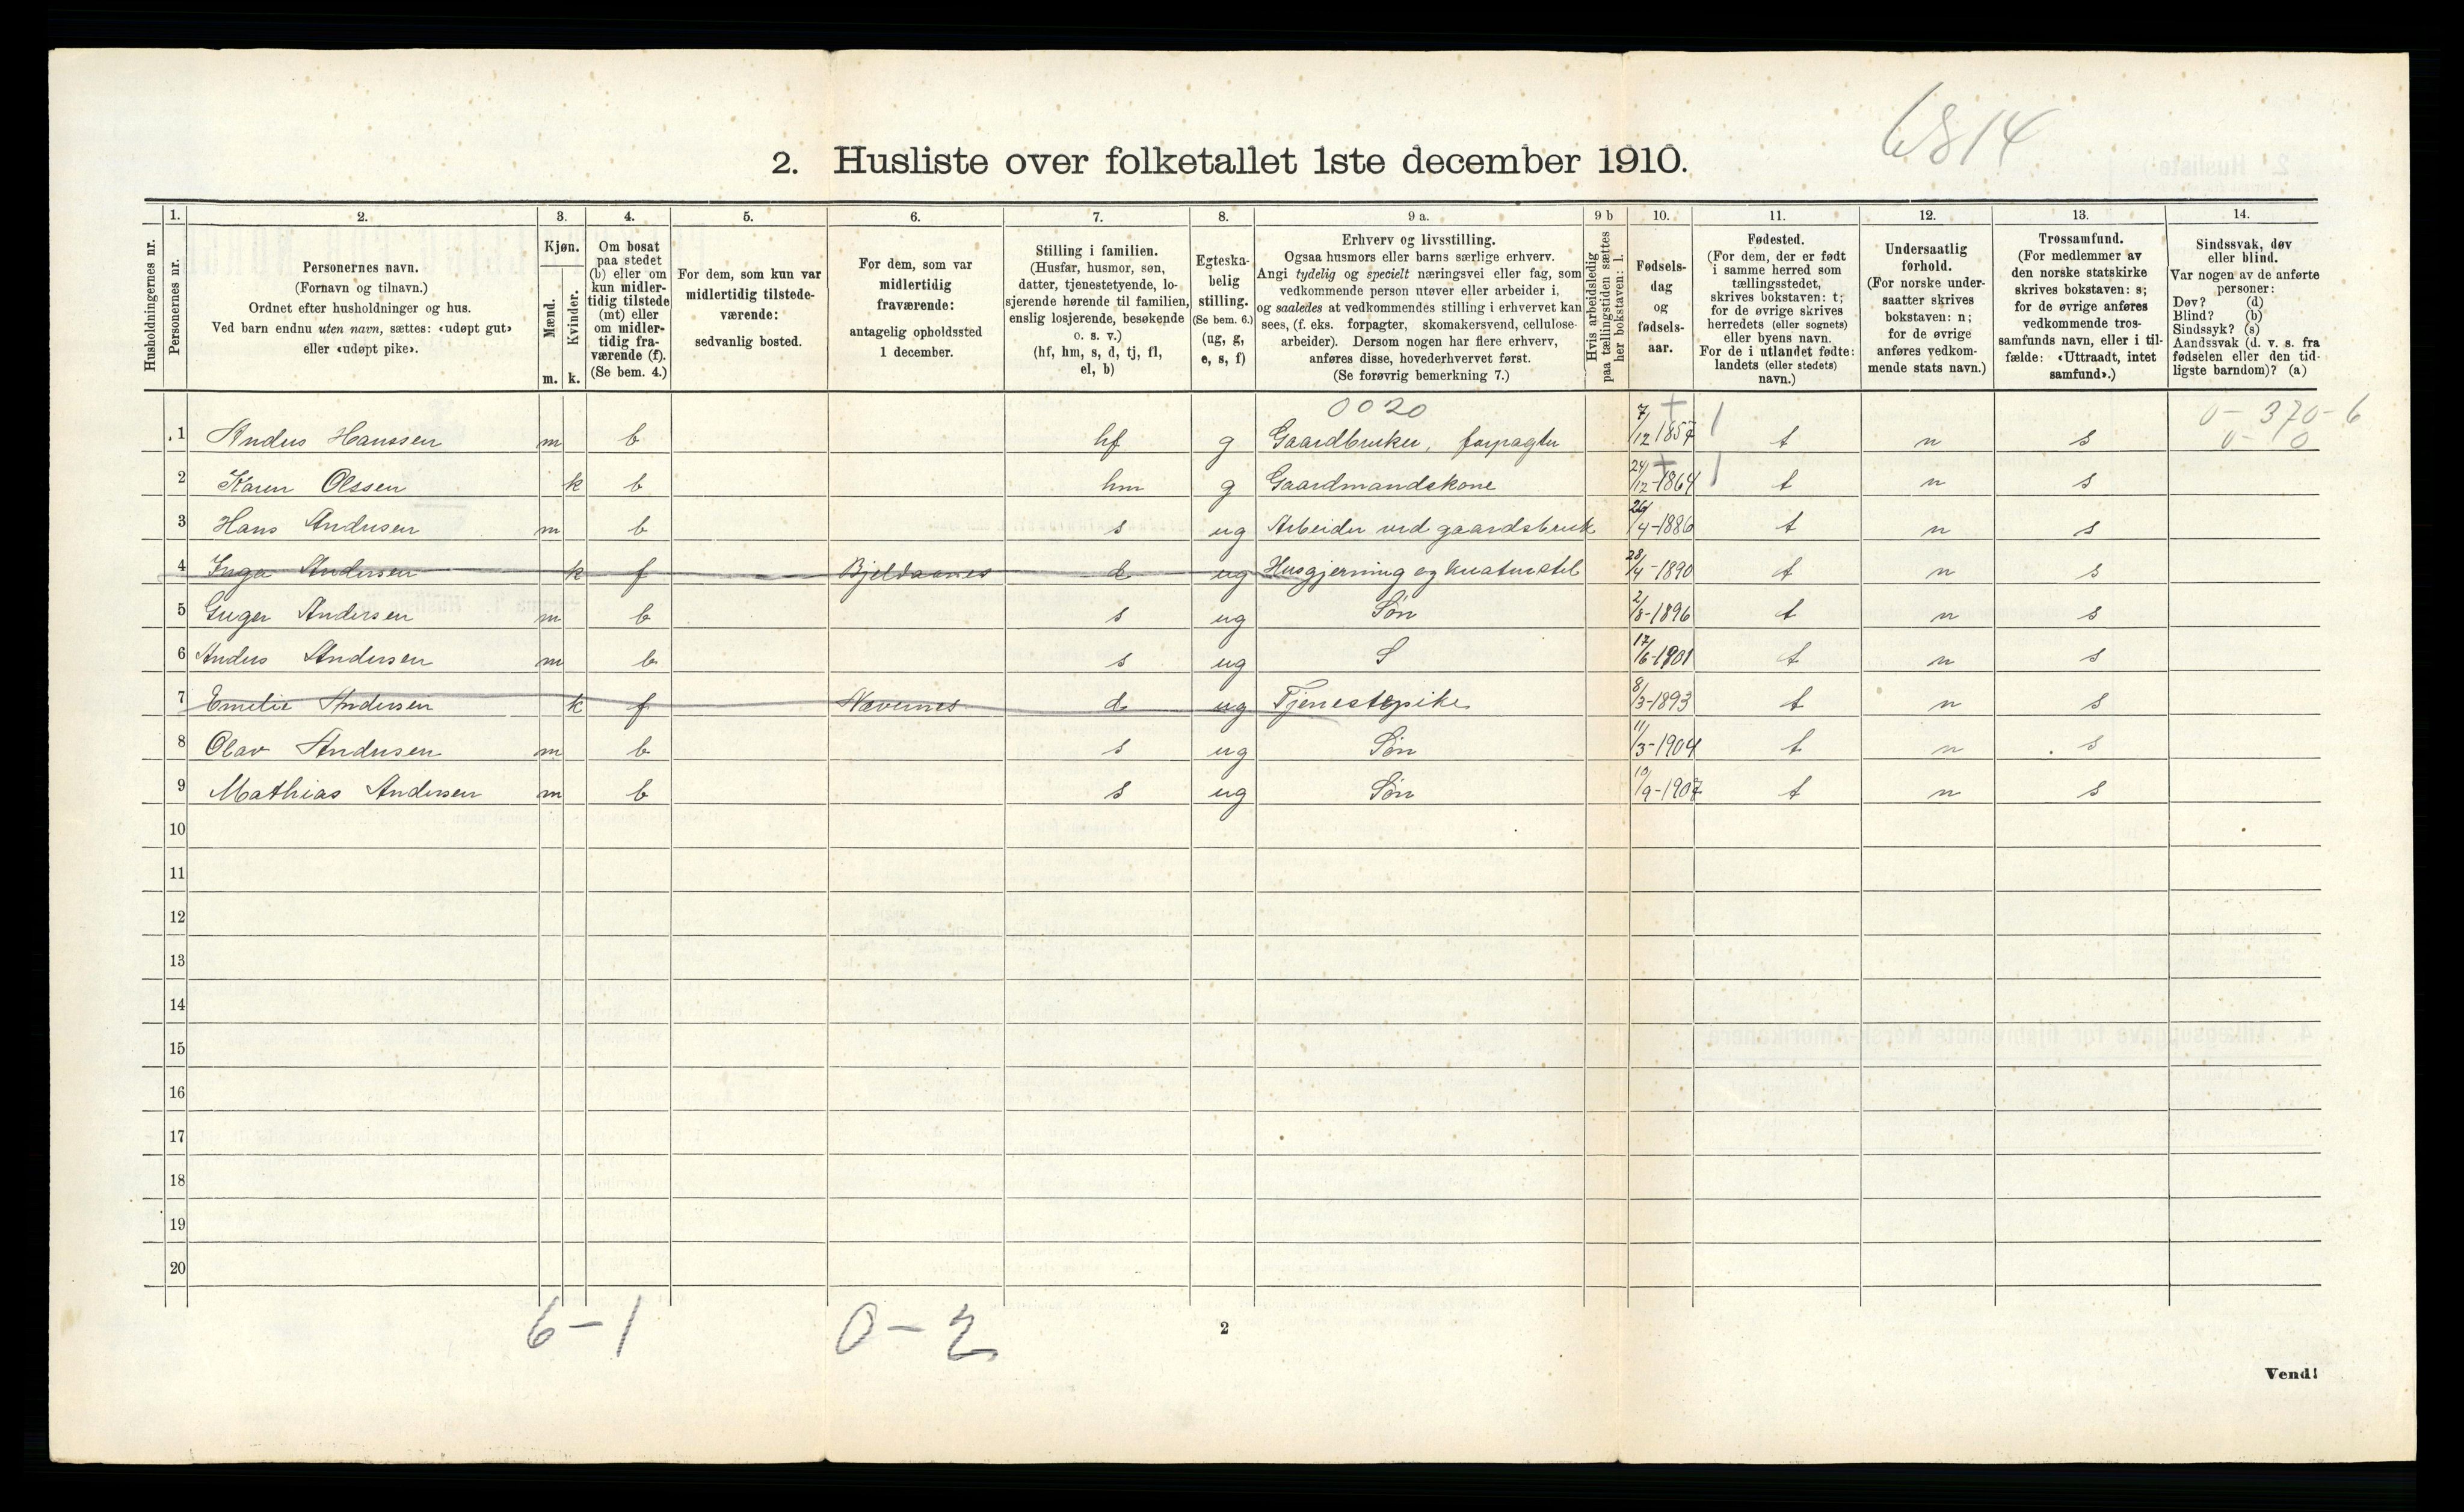 6814
2. Husliste over folketallet 1ste december 1910.
Husholdningernes nr.
1. Personernes nr.
2. Personernes navn.
(Fornavn og tilnavn.)
Ordnet efter husholdninger og hus.
Ved barn endnu uten navn, sættes: «udøpt gut»
eller «udøpt pike».
3. Kjøn.
Mænd. m.
Kvinder. k.
4. Om bosat
paa stedet
(b) eller om
kun midler-
tidig tilstede
(mt) eller
om midler-
tidig fra-
værende (f).
(Se bem. 4.)
5. For dem, som kun var
midlertidig tilstede-
værende:
sedvanlig bosted.
6. For dem, som var
midlertidig
fraværende:
antagelig opholdssted
1 december.
7. Stilling i familien.
(Husfar, husmor, søn,
datter, tjenestetyende, lo-
sjerende hørende til familien,
enslig losjerende, besøkende
o. s. v.)
(hf, hm, s, d, tj, fl,
el, b)
8. Egteska-
belig
stilling.
(Se bem. 6.)
(ug, g,
e, s, f)
9 a. Erhverv og livsstilling.
Ogsaa husmors eller barns særlige erhverv.
Angi tydelig og specielt næringsvei eller fag, som
vedkommende person utøver eller arbeider i,
og saaledes at vedkommendes stilling i erhvervet kan
sees, (f. eks. forpagter, skomakersvend, cellulose-
arbeider). Dersom nogen har flere erhverv,
anføres disse, hovederhvervet først.
(Se forøvrig bemerkning 7.)
9 b Hvis arbeidsledig
paa tællingstiden sættes
her bokstaven: l.
10. Fødsels-
dag
og
fødsels-
aar.
11. Fødested.
(For dem, der er født
i samme herred som
tællingsstedet,
skrives bokstaven: t;
for de øvrige skrives
herredets (eller sognets)
eller byens navn.
For de i utlandet fødte:
landets (eller stedets)
navn.)
12. Undersaatlig
forhold.
(For norske under-
saatter skrives
bokstaven: n;
for de øvrige
anføres vedkom-
mende stats navn.)
13. Trossamfund.
(For medlemmer av
den norske statskirke
skrives bokstaven: s;
for de øvrige anføres
vedkommende tros-
samfunds navn, eller i til-
fælde: «Uttraadt, intet
samfund».)
14. Sindssvak, døv
eller blind.
Var nogen av de anførte
personer:
Døv? (d)
Blind? (b)
Sindssyk? (s)
Aandssvak (d. v. s. fra
fødselen eller den tid-
ligste barndom)? (a)
0020
0-370-6
0-0
1 Anders Hanssen m b hf g Gaardbruker, forpagter 7/12 1857 t n s
2 Karen Olssen k b hm g Gaardmandskone 24/12-1864 t n s
3 Hans Andersen m b s ug Arbeider ved gaardsbruk 26/4-1886 t n s
4 Inga Andersen k f Bjeldaanes d ug Husgjerning og kreaturstel 28/4-1890 t n s
5 Andersen m b s ug Søn 2/8-1896 t n s
6 Anders Andersen m b s ug S 17/6-1901 t n s
7 Emelie Andersen k f Nævernes d ug Tjenestepike 8/3-1893 t n s
8 Olav Andersen m b s ug Søn 11/3-1904 t n s
9 Mathias Andersen m b s ug Søn 10/9-1907 t n s
10
11
12
13
14
15
16
17
18
19
20
6-1 0-2
2
Vend!